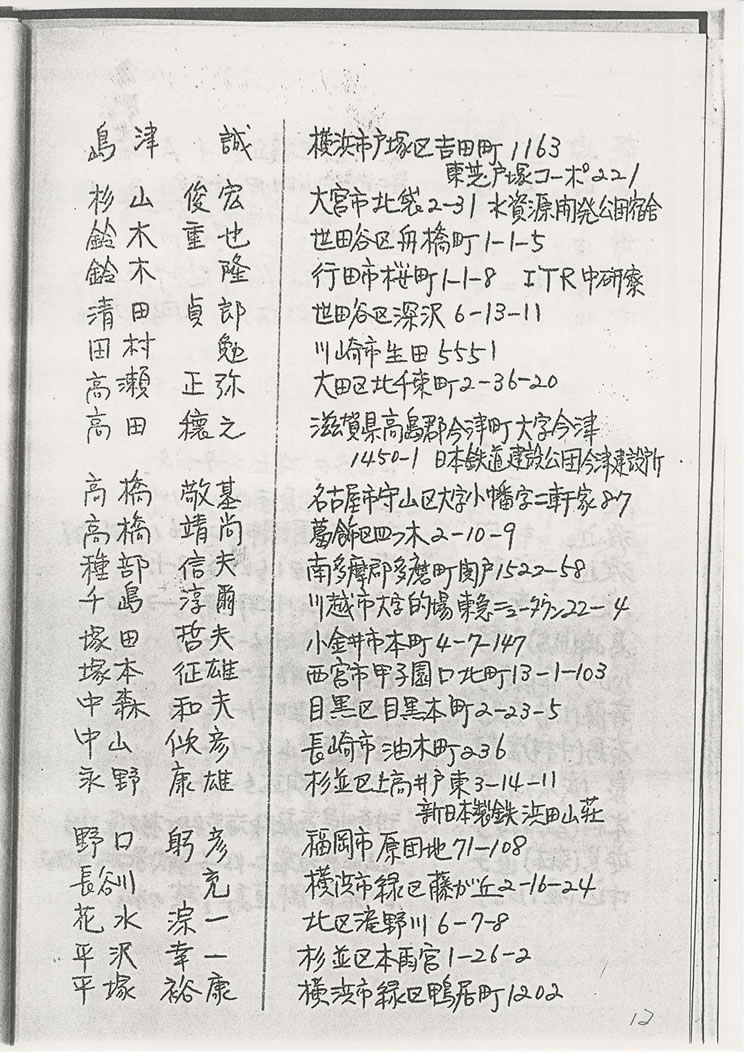 島津 誠 横浜市戸塚区吉田町1163
東芝戸塚コーポ221
杉山 俊宏 大宮市北袋2-31 水資源開発公団宿舎
鈴木 重也 世田谷区舟橋町1-1-5
鈴木 隆 行田市桜町1-1-8 ITR中研寮
清田 貞郎 世田谷区深沢6-13-11
田村 勉 川崎市生田5551
高瀬 正弥 大田区北千束町2-36-20
高田 穣之 滋賀県高島郡今津町大字今津
1450-1 日本鉄道建設公団今津建設所
高橋 敬基 名古屋市守山区大字小幡字二軒家87
高橋 靖尚 葛飾区四つ木2-10-9
種部 信夫 南多摩郡多磨町関戸1522-58
千島 淳爾 川越市大字的場東急ニュータウン22-4
塚田 哲夫 小金井市本町4-7-147
塚本 征雄 西宮市甲子園口北町13-1-103
中森 和夫 目黒区目黒本町2-23-5
中山 彦 長崎市油木町236
永野 康雄 杉並区上高井戸東3-14-11
新日本製鉄浜田山荘
野口 躬彦 福岡市原団地71-108
長谷川 充 横浜市緑区藤が丘2-16-24
花水 淙一 北区滝野川6-7-8
平沢 幸一 杉並区本天沼1-26-2
平塚 裕康 横浜市緑区鴨居町1202
12